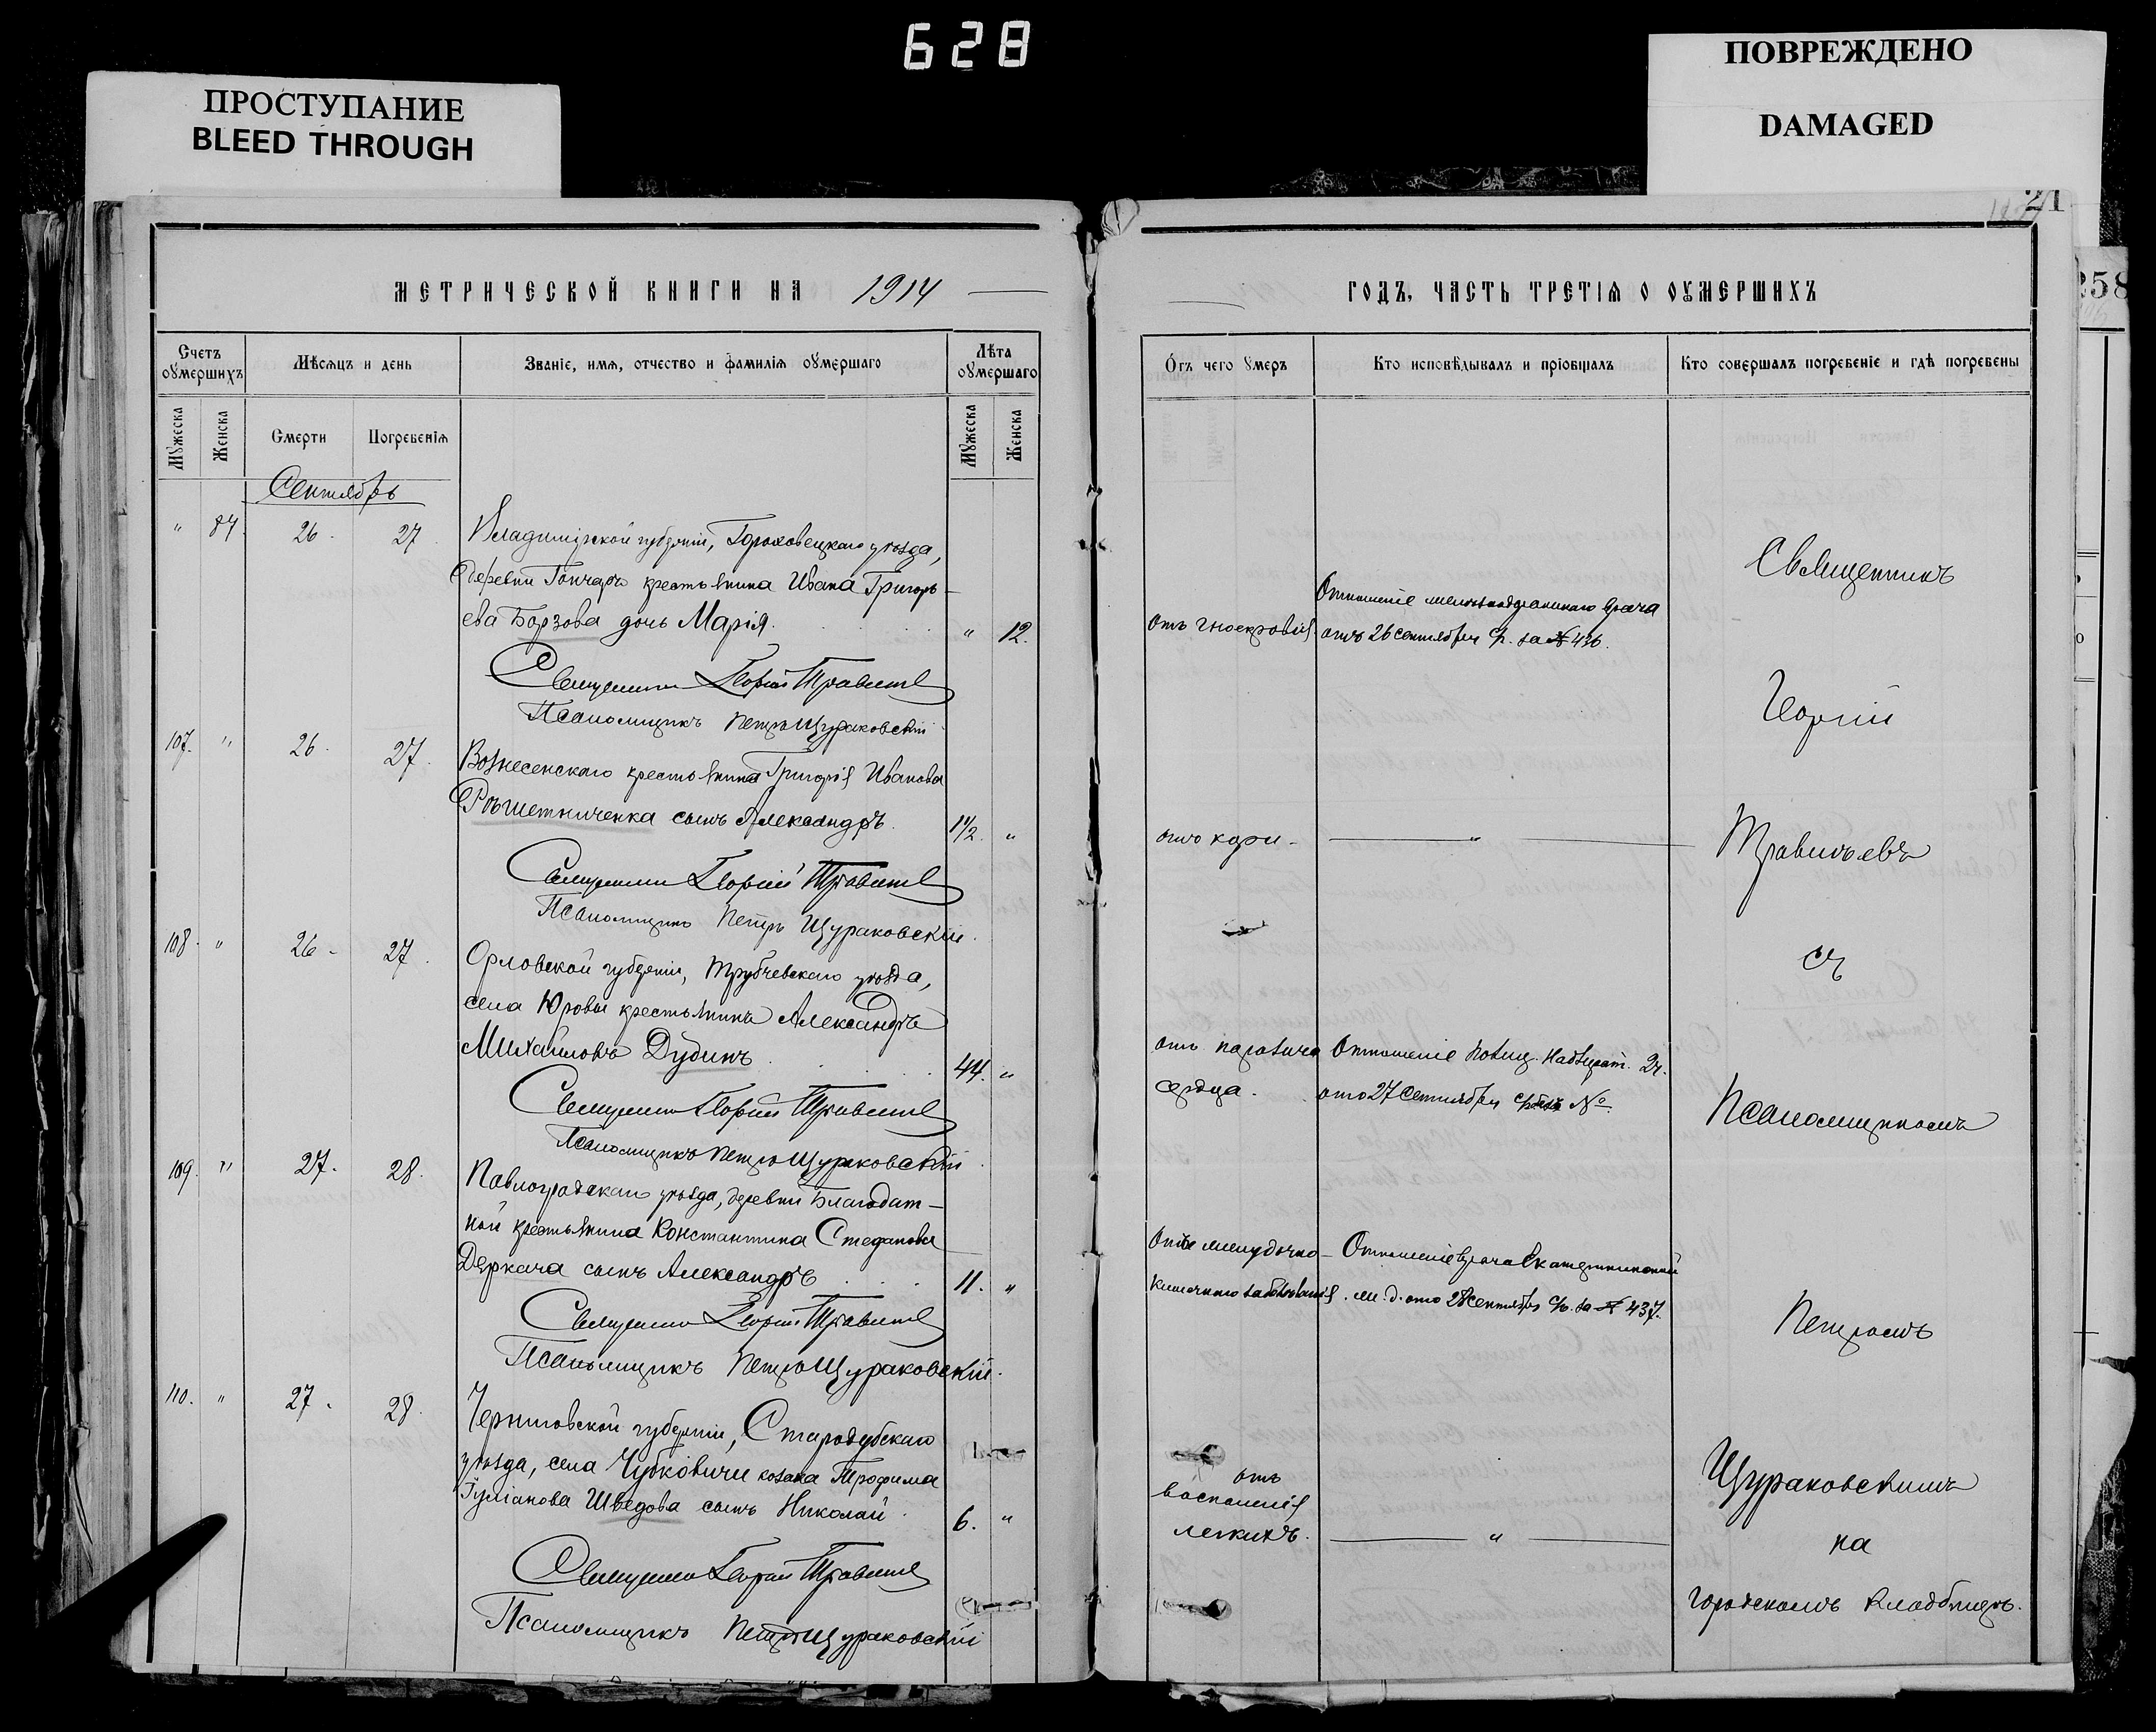 628
ПРОСТУПАНИЕ
BLEED THROUGH
ПОВРЕЖДЕНО
DAMAGED
21
258
МЕТРИЧЕСКОЙ КНИГИ НА 1914
ГОДЪ, ЧАСТЬ ТРЕТІЯ О ОУМЕРШИХЪ
Счетъ оумершихъ
Мѣсяцъ и день
Званіе, имя, отчество и фамилія оумершаго
Лѣта оумершаго
Отъ чего умеръ
Кто исповѣдывалъ и пріобщалъ
Кто совершалъ погребеніе и гдѣ погребены
Мужеска
Женска
Смерти
Погребенія
Мужеска
Женска
Сентябрь
" 84. 26. 27. Владимірской губерніи, Гороховецкаго уѣзда,
деревни Гончаръ крестьянина Ивана Григорь-
ева Борзова дочь Марія. " 12.
отъ гноекровія.
Отношеніе железнодорожнаго врача
отъ 26 сентября с/г. за № 436.
Священникъ Георгій Травинъ
Псаломщикъ Петръ Щураковскій
107. " 26. 27. Вознесенскаго крестьянина Григорія Иванова
Рѣшетниченка сынъ Александръ. 1 1/2. "
отъ кори - "
Священникъ Георгій
Псаломщикъ Петръ Щураковскій.
108. " 26. 27. Орловской губерніи, Трубчевскаго уѣзда,
села Юровы крестьянинъ Александръ
Михайловъ Дудинъ 44. "
отъ паралича
сердца.
Отношеніе Полиц. Надзират. 2 ч.
отъ 27 сентября №
Священникъ Георгій
Псаломщикъ Петръ Щураковскій.
109. " 27. 28. Павлоградскаго уѣзда, деревни Благодат-
ной крестьянина Константина Стефанова
Деркача сынъ Александръ 11. "
отъ желудочно-
кишечнаго заболѣванія.
Отношеніе врача Екатерининской
ж. д. отъ 28 сентября с/г. за № 437.
Священникъ Георгій
Псаломщикъ Петръ Щураковскій.
110. " 27. 28. Черниговской губерніи, Стародубскаго
уѣзда, села Чубковичи козака Трофима
Іуліанова Шведова сынъ Николай 6. "
отъ
воспаленія
легкихъ. "
Священникъ Георгій
Псаломщикъ Петръ Щураковскій
Священникъ
Георгій
съ
Псаломщикомъ
Петромъ
Щураковскимъ
на
городскомъ кладбищѣ.